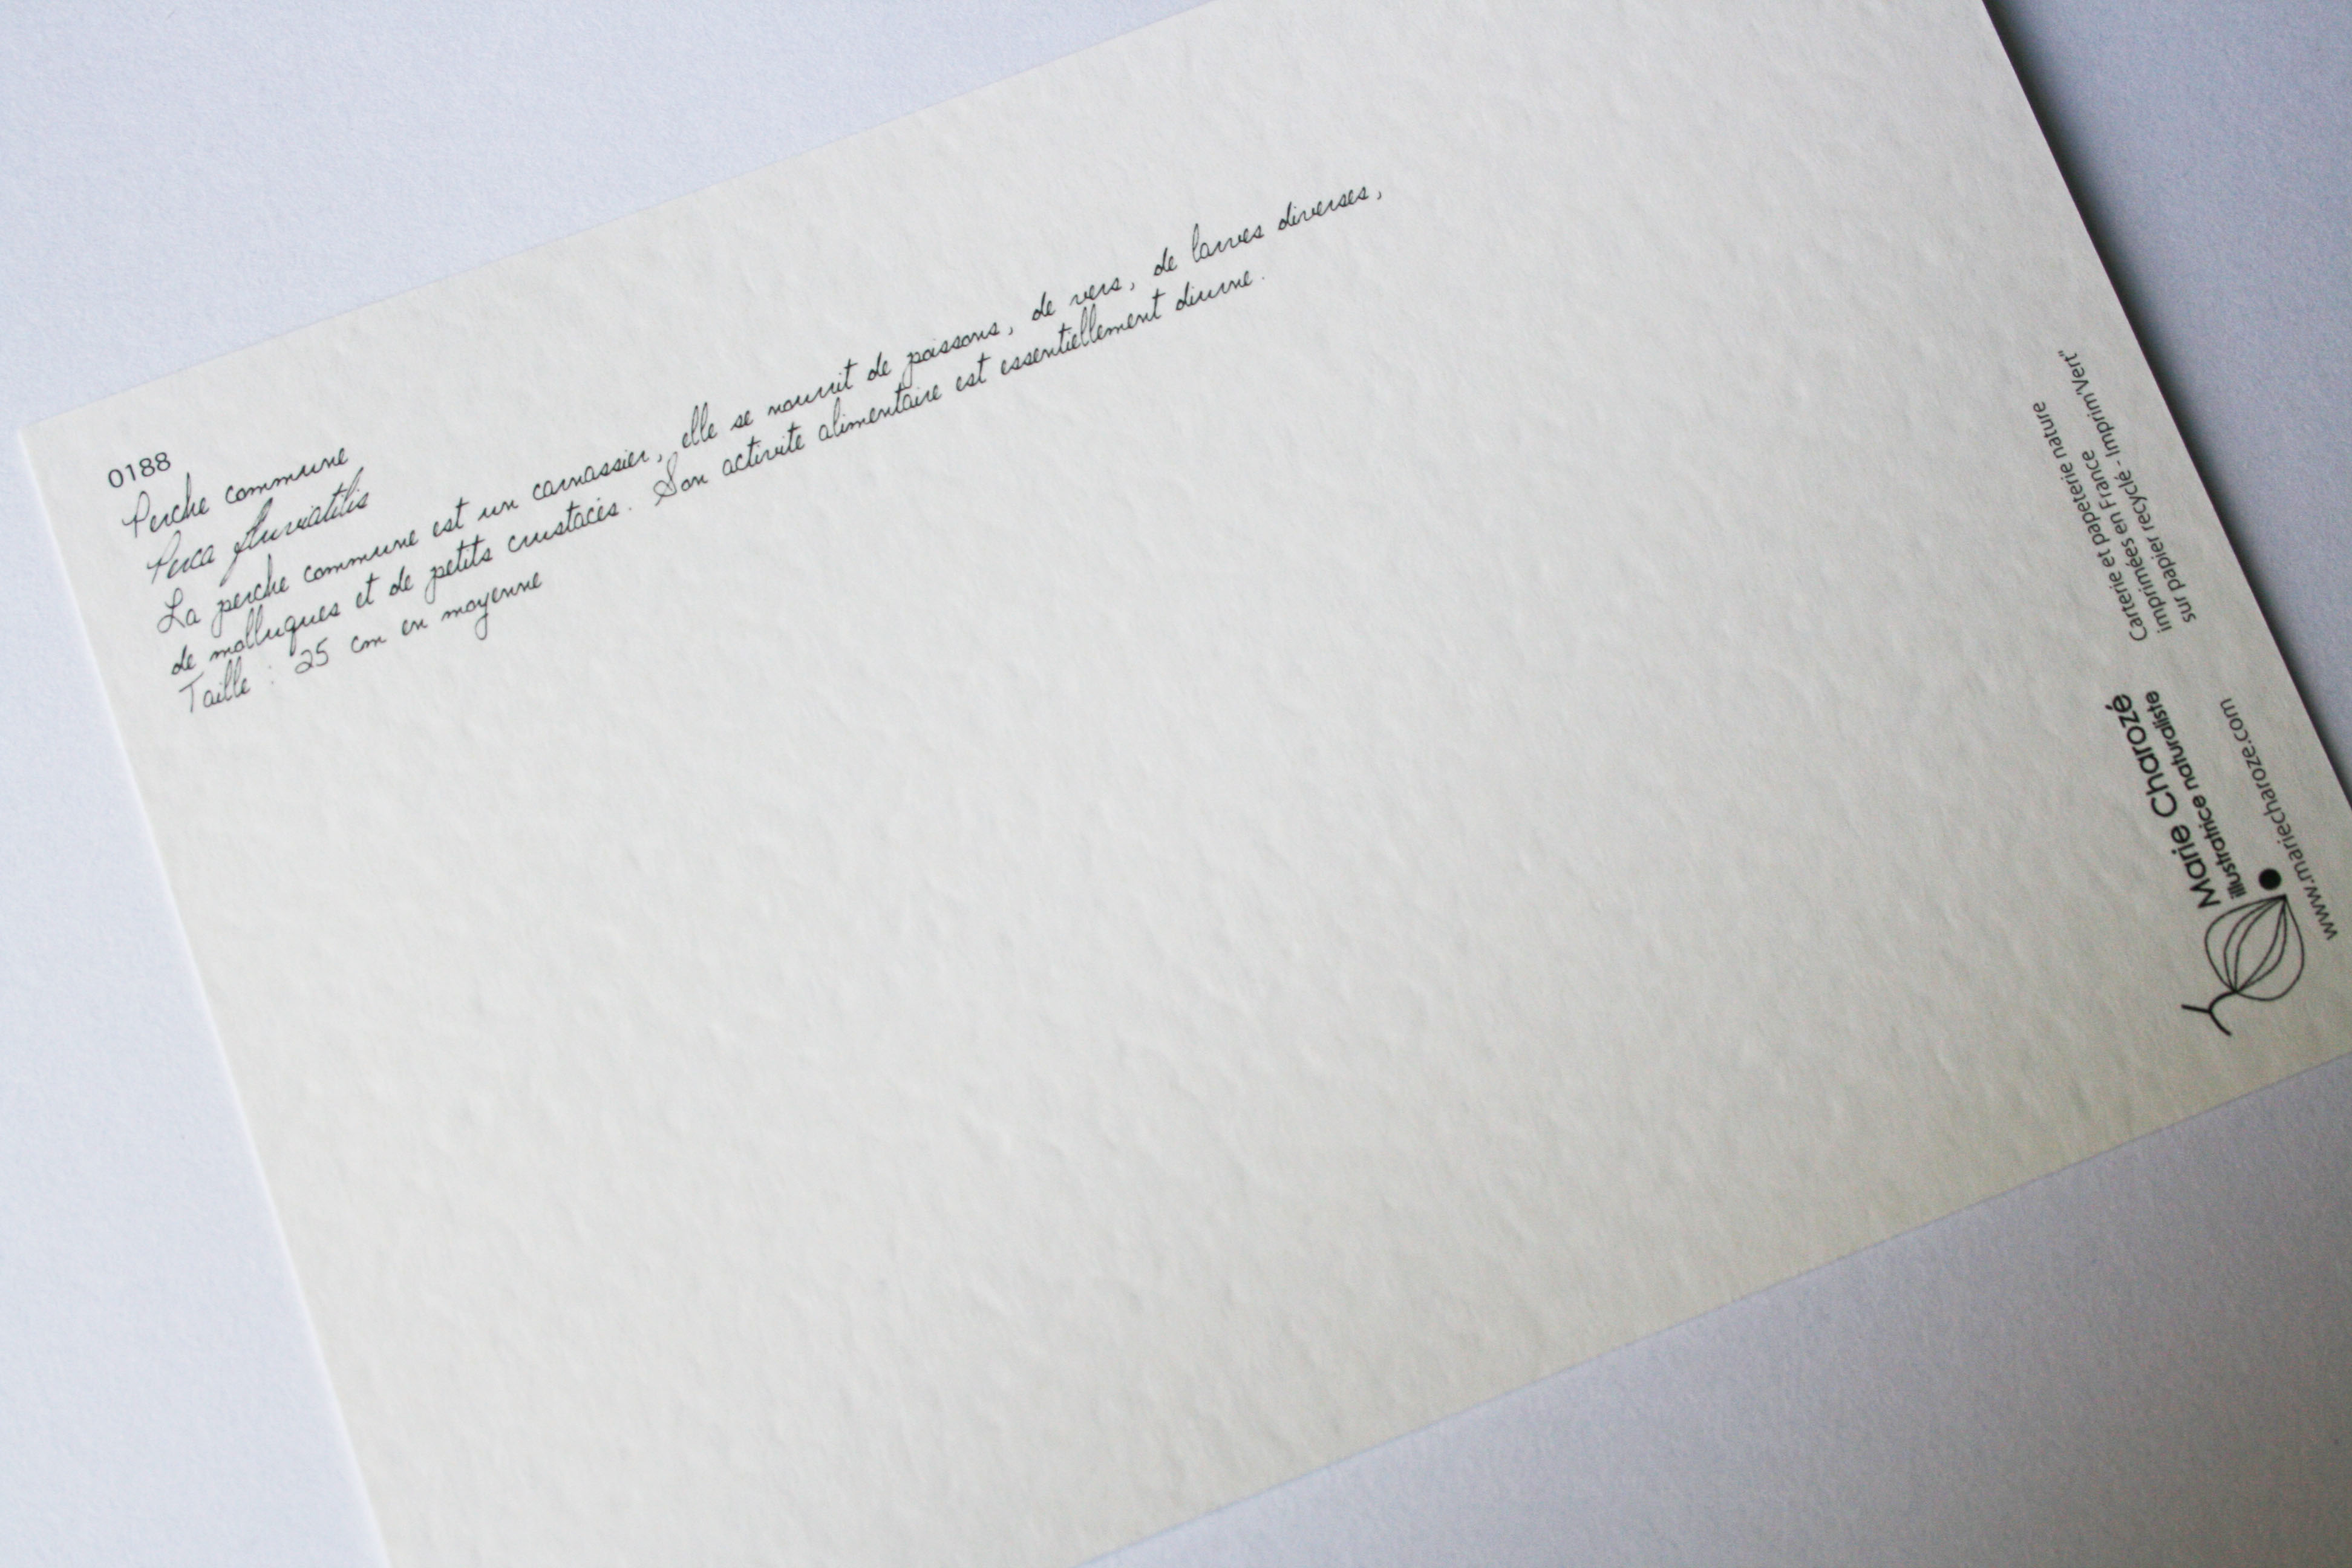 0188
Perche commune
Perca fluviatilis
La perche commune est un carnassier, elle se nourrit de poissons, de vers, de larves diverses,
de molluques et de petits crustacés. Son activité alimentaire est essentiellement diurne.
Taille : 25 cm en moyenne
Carterie et papeterie nature
imprimées en France
sur papier recyclé - Imprim'Vert"
Marie Charozé
illustratrice naturaliste
www.mariecharoze.com